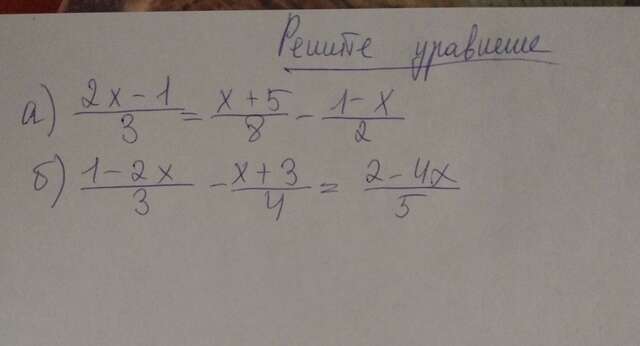 Решите уравнение
а) \frac{2x-1}{3} = \frac{x+5}{8} - \frac{1-x}{2}
б) \frac{1-2x}{3} - \frac{x+3}{4} = \frac{2-4x}{5}